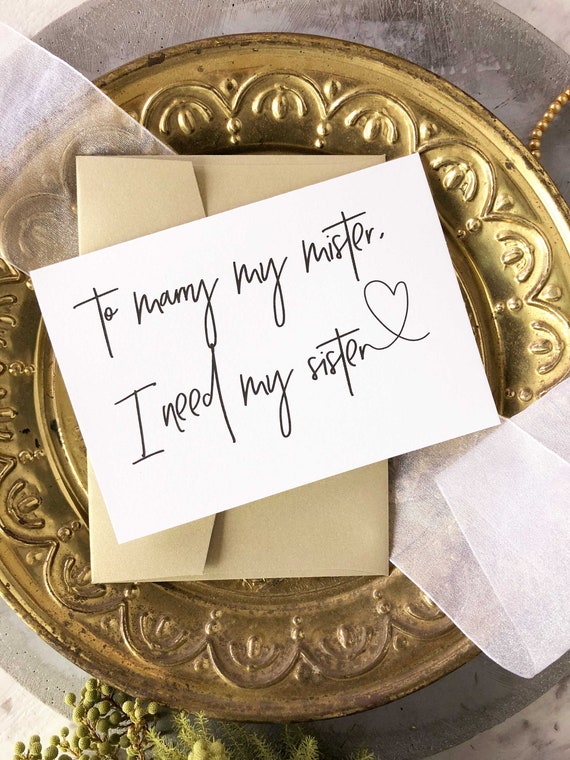 To marry my mister,
I need my sister